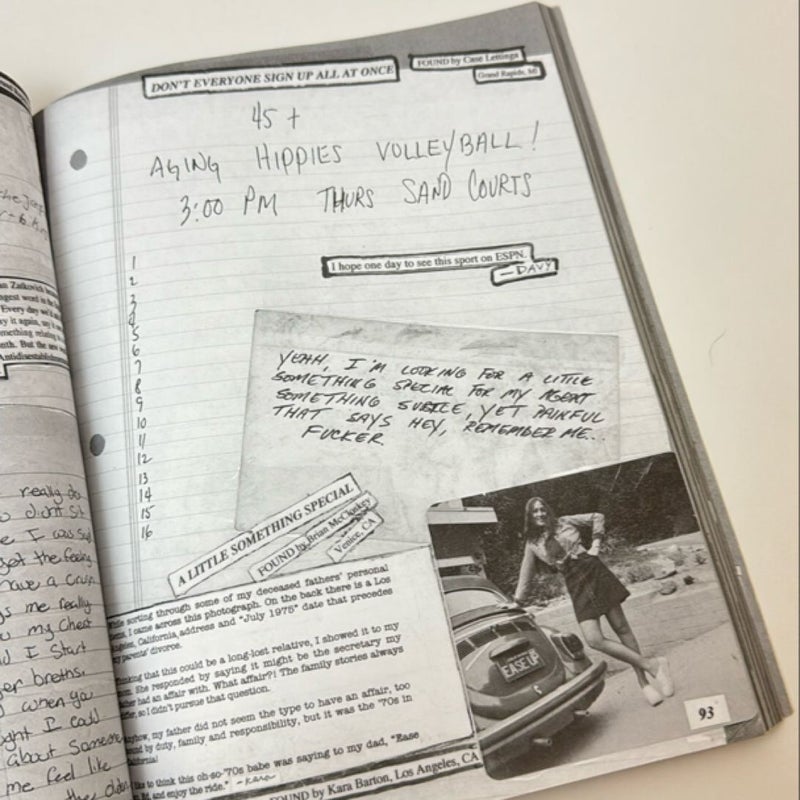 DON'T EVERYONE SIGN UP ALL AT ONCE
FOUND by Case Lettinga
Grand Rapids, MI
45 +
AGING HIPPIES VOLLEYBALL!
3:00 PM THURS SAND COURTS
1
2
3
4
5
6
7
8
9
10
11
12
13
14
15
16
I hope one day to see this sport on ESPN.
—DAVY
YEAH, I'M LOOKING FOR A LITTLE
SOMETHING SPECIAL FOR MY AGENT
SOMETHING SUBTLE, YET PAINFUL
THAT SAYS HEY, REMEMBER ME...
FUCKER.
A LITTLE SOMETHING SPECIAL
FOUND by Brian McCloskey
Venice, CA
sorting through some of my deceased fathers' personal
I came across this photograph. On the back there is a Los
California, address and "July 1975" date that precedes
parents' divorce.
that this could be a long-lost relative, I showed it to my
She responded by saying it might be the secretary my
had an affair with. What affair?! The family stories always
so I didn't pursue that question.
my father did not seem the type to have an affair, too
by duty, family and responsibility, but it was the '70s in
to think this oh-so-'70s babe was saying to my dad, "Ease
and enjoy the ride." -Kara
FOUND by Kara Barton, Los Angeles, CA
EASE UP
93
Zatkovich
word in the
Every day
it again,
something
But the
really do
didn't sit
I was
got the feeling
have a crush
me really
my chest
I start
breths.
when you
I could
about someone
me feel like
the